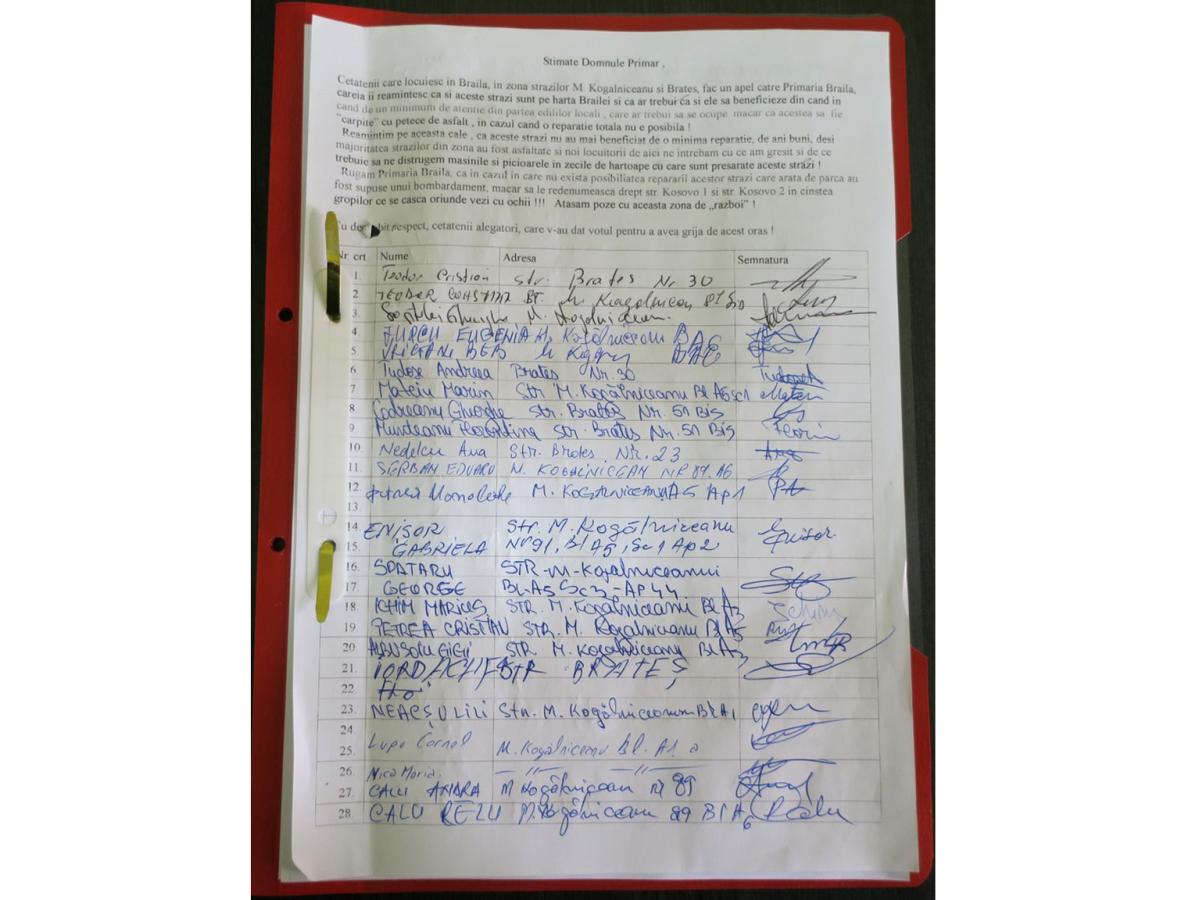 Stimate Domnule Primar ,
Cetatenii care locuiesc in Braila, in zona strazilor M. Kogalniceanu si Brates, fac un apel catre Primaria Braila,
careia ii reamintesc ca si aceste strazi sunt pe harta Brailei si ca ar trebui ca si ele sa beneficieze din cand in
cand de un minimum de atentie din partea edililor locali , care ar trebui sa se ocupe macar ca acestea sa fie
"carpite" cu petece de asfalt , in cazul cand o reparatie totala nu e posibila !
Reamintim pe aceasta cale , ca aceste strazi nu au mai beneficiat de o minima reparatie, de ani buni, desi
majoritatea strazilor din zona au fost asfaltate si noi locuitorii de aici ne intrebam cu ce am gresit si de ce
trebuie sa ne distrugem masinile si picioarele in zecile de hartoape cu care sunt presarate aceste strazi !
Rugam Primaria Braila, ca in cazul in care nu exista posibiliatea repararii acestor strazi care arata de parca au
fost supuse unui bombardament, macar sa le redenumeasca drept str. Kosovo 1 si str. Kosovo 2 in cinstea
gropilor ce se casca oriunde vezi cu ochii !!! Atasam poze cu aceasta zona de „razboi" !
bit respect, cetatenii alegatori, care v-au dat votul pentru a avea grija de acest oras !
Nr. crt Nume Adresa Semnatura
1. Teodor Cristian str. Brates Nr 30
2. TEODOR
3. Gheorghe M. Kogalniceanu
4. EUGENIA M. Kogalniceanu
5.
6 Tudose Andreea Brates Nr. 30
7. Mateiu Marin Str M. Kogălniceanu Bl A5 sc1
8 Codreanu Gheorghe str. Brates Nr. 51 Bis
9. Munteanu Florentina str. Brates Nr. 51 Bis Florin
10 Nedelcu Ana Str. Brates Nr. 23 Ana
11. SERBAN EDUARD M. KOGALNICEAN NR 89. A6
12. M. KOGALNICEANU A5 Ap 1
13.
14. ENISOR Str. M. Kogălniceanu Enisor
15. GABRIELA Nr 91, Bl A5, Sc 1 Ap 2
16. SPATARU STR-M-Kogalniceanui
17. GEORGE BL-A5 Sc3-AP44
18. ICHIM MARIUS STR. M. Kogalniceanu Bl A3 Ichim
19. PETREA CRISTIAN STR. M. Kogalniceanu Bl A5
20. GIGI STR. M Kogalniceanu Bl A3
21. IORDACHE STR BRATEȘ
22.
23. NEACȘU LILI Str. M. Kogălniceanu Bl A1
24.
25. Lupu Cornel M. Kogălniceanu Bl. A1 a
26. Nica Maria —"— —"—
27. CALU M Kogălnicean nr 89
28. CALU RELU M. Kogălniceanu 89 Bl A6